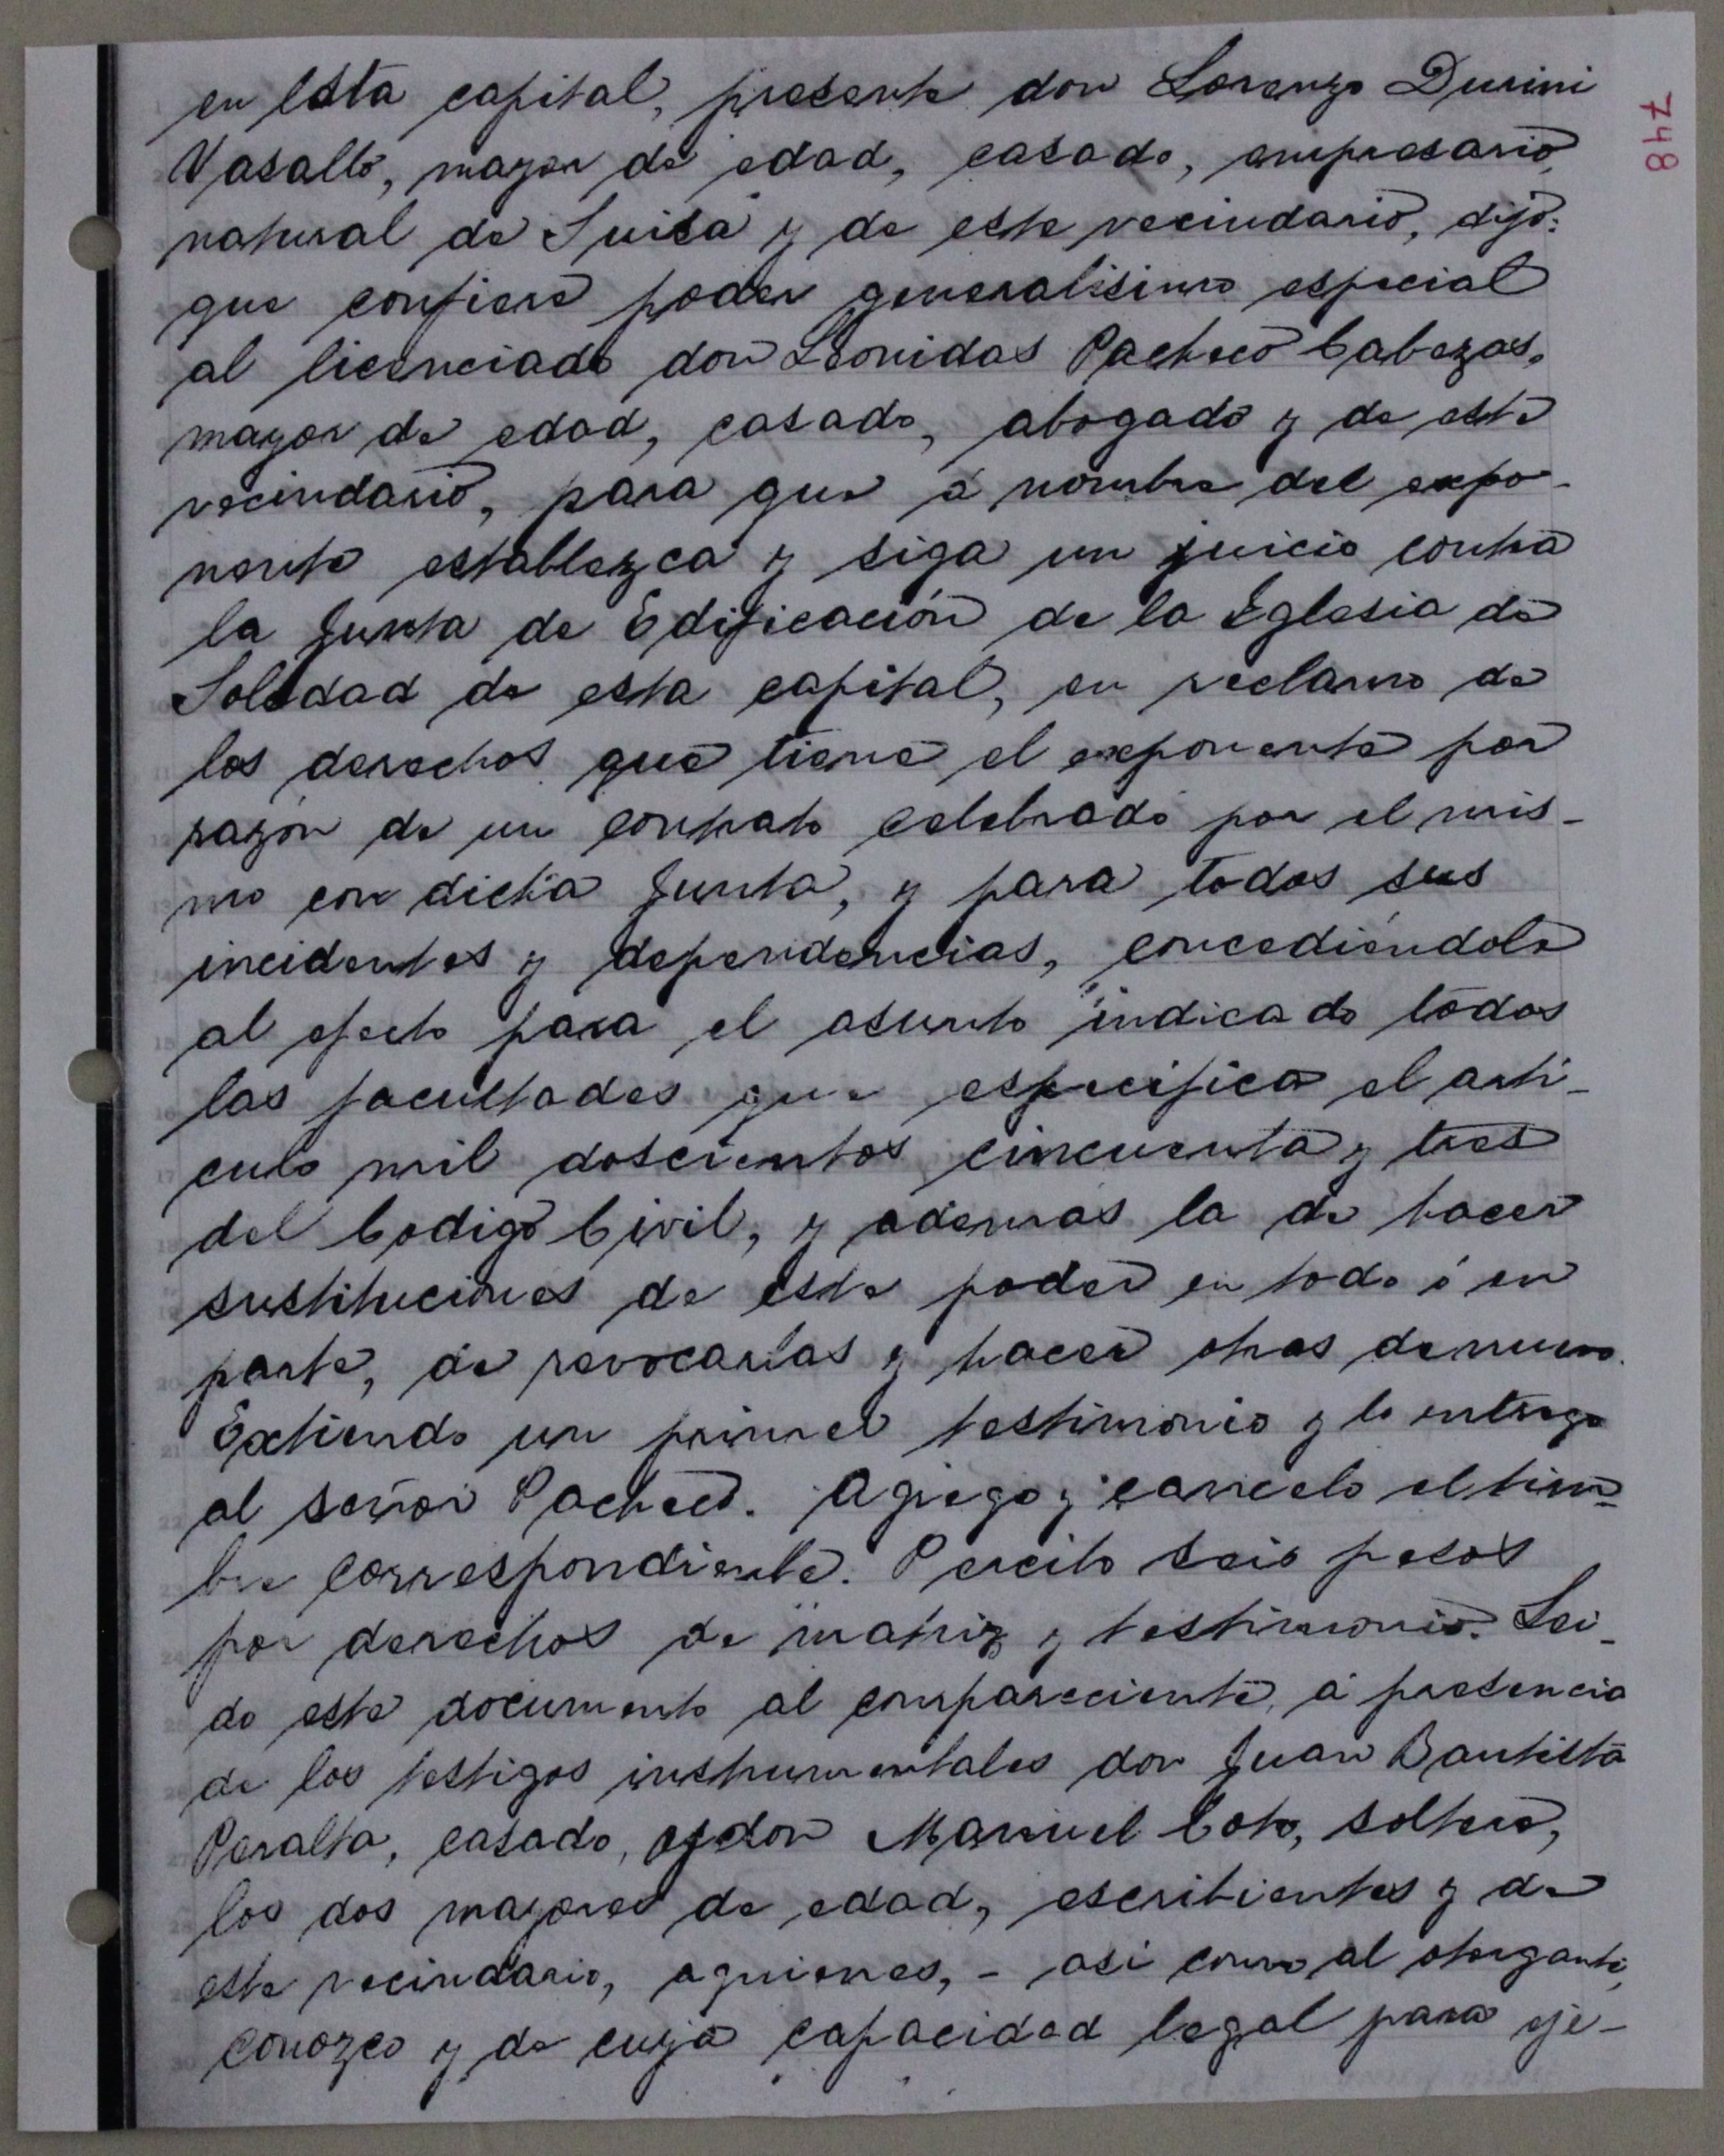 en esta capital, presente don Lorenzo Durini
Vasallo, mayor de edad, casado, empresario,
natural de Suiza y de este vecindario, dijo:
que confiere poder generalísimo especial
al licenciado don Leonidas Pacheco Cabezas,
mayor de edad, casado, abogado y de este
vecindario, para que á nombre del expo-
nente establezca y siga un juicio contra
la Junta de Edificación de la Iglesia de
Soledad de esta capital, en reclamo de
los derechos que tiene el exponente por
razón de un contrato celebrado por el mis-
mo con dicha Junta, y para todos sus
incidentes y dependencias, concediéndole
al efecto para el asunto indicado todas
las facultades que especifica el artí-
culo mil doscientos cincuenta y tres
del Codigo Civil, y además la de hacer
sustituciones de este poder en todo ó en
parte, de revocarlas y hacer otras de nuevo.
Extiendo un primer testimonio y lo entrego
al señor Pacheco. Agrego y cancelo el tim-
bre correspondiente. Percibo seis pesos
por derechos de matriz y testimonio. Leí-
do este documento al compareciente, á presencia
de los testigos instrumentales don Juan Bautista
Peralta, casado, y don Manuel Coto, soltero,
los dos mayores de edad, escribientes y de
este vecindario, a quienes, - así como al otorgante,
conozco y de cuya capacidad legal para eje-
748